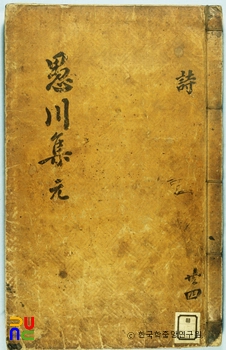 詩
愚川集 元
共四
ⓒ 한국학중앙연구원